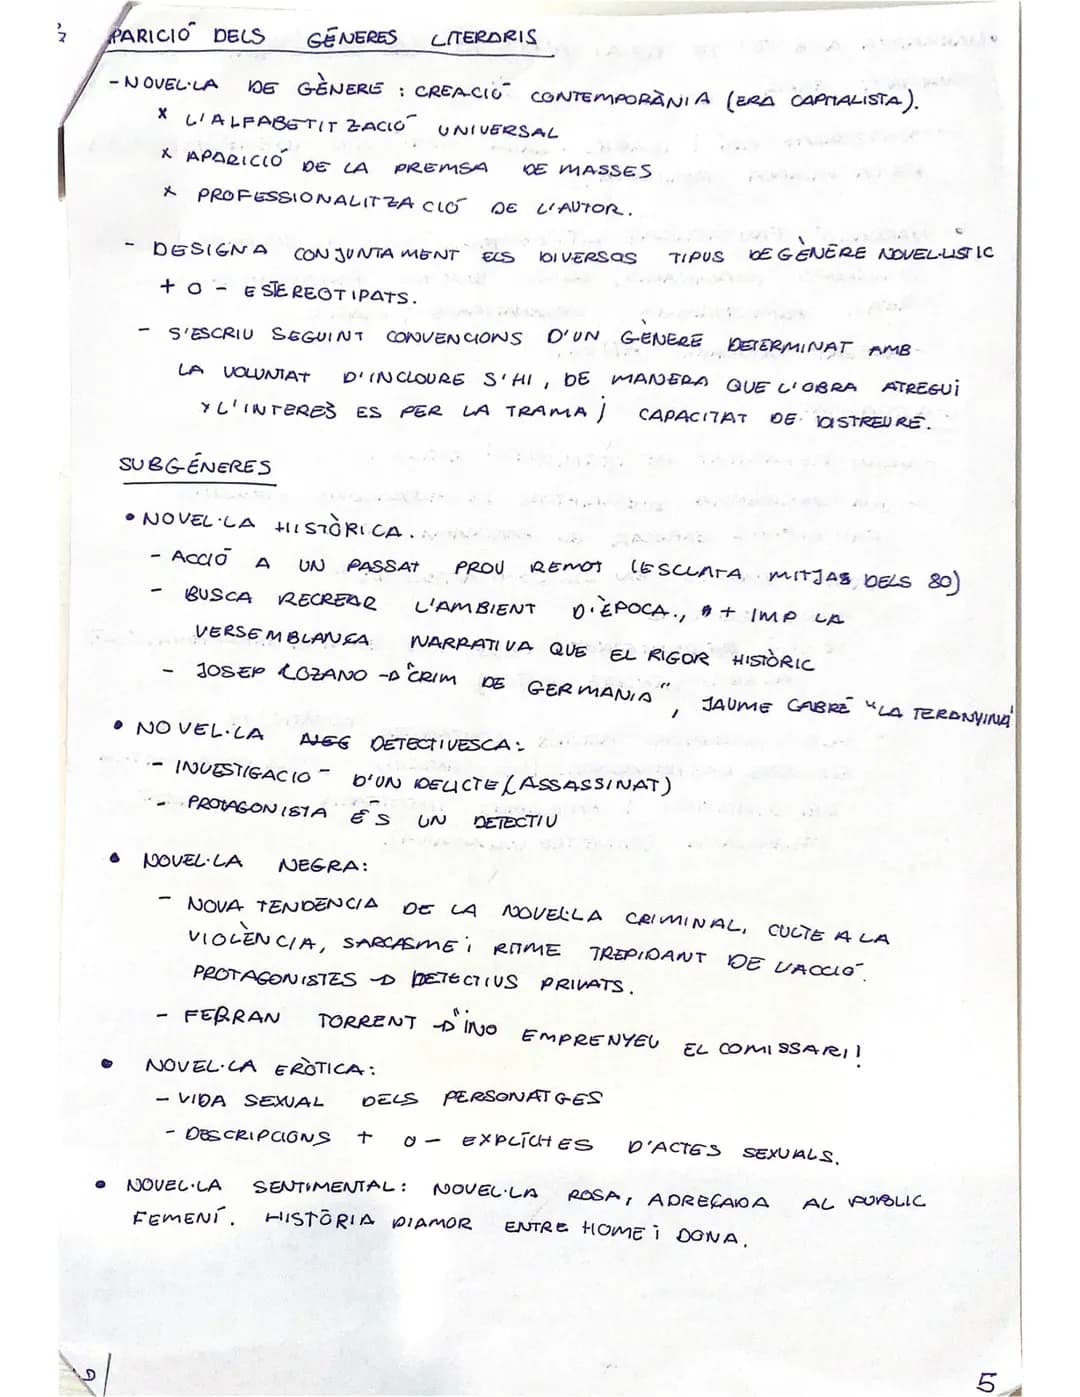 PARICIÓ DELS GÉNERES LITERARIS
- NOVEL·LA DE GÈNERE : CREACIÓ CONTEMPORÀNIA (ERA CAPITALISTA).
x L'ALFABETITZACIÓ UNIVERSAL
x APARICIÓ DE LA PREMSA DE MASSES
x PROFESSIONALITZACIÓ DE L'AUTOR.
- DESIGNA CONJUNTAMENT ELS DIVERSOS TIPUS DE GÈNERE NOVEL·LISTIC
+ O - ESTEREOTIPATS.
- S'ESCRIU SEGUINT CONVENCIONS D'UN GÈNERE DETERMINAT AMB
LA VOLUNTAT D'INCLOURE S'HI, DE MANERA QUE L'OBRA ATREGUI
Y L'INTERÈS ES PER LA TRAMA i CAPACITAT DE DISTREURE.
SUBGÉNERES
• NOVEL·LA HISTÒRICA.
- ACCIÓ A UN PASSAT PROU REMOT (ESCLATA MITJAS DELS 80)
- BUSCA RECREAR L'AMBIENT D'ÈPOCA., + IMP LA
VERSEMBLANÇA NARRATIVA QUE EL RIGOR HISTÒRIC
- JOSEP LOZANO -D "CRIM DE GERMANIA", JAUME CABRÉ "LA TERANYINA"
• NOVEL·LA NEG DETECTIVESCA:
- INVESTIGACIO D'UN DELICTE (ASSASSINAT)
- PROTAGONISTA ÉS UN DETECTIU
• NOVEL·LA NEGRA:
- NOVA TENDÈNCIA DE LA NOVEL·LA CRIMINAL, CULTE A LA
VIOLÈNCIA, SARCASME i RITME TREPIDANT DE L'ACCIÓ.
PROTAGONISTES -D DETECTIUS PRIVATS.
- FERRAN TORRENT -D "NO EMPRENYEU EL COMISSARI!
• NOVEL·LA ERÒTICA:
- VIDA SEXUAL DELS PERSONATGES
- DESCRIPCIONS + O - EXPLÍCITES D'ACTES SEXUALS.
• NOVEL·LA SENTIMENTAL: NOVEL·LA ROSA, ADREÇADA AL PUBLIC
FEMENÍ. HISTÒRIA D'AMOR ENTRE HOME i DONA.
5